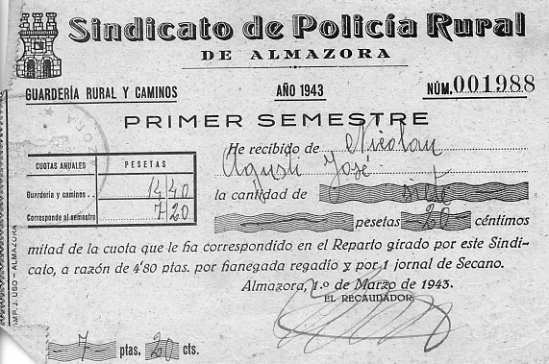 Sindicato de Policía Rural
DE ALMAZORA
GUARDERÍA RURAL Y CAMINOS AÑO 1943 NÚM. 001988
PRIMER SEMESTRE
He recibido de Nicolau
Agusti José
CUOTAS ANUALES PESETAS
la cantidad de siete
Guardería y caminos.. 14 40
Corresponde al semestre 7 20
pesetas 20 céntimos
mitad de la cuota que le ha correspondido en el Reparto girado por este Sindi-
cato, a razón de 4'80 ptas. por hanegada regadío y por 1 jornal de Secano.
Almazora, 1.º de Marzo de 1943.
EL RECAUDADOR,
7 ptas. 20 cts.
IMP. J. USO - ALMAZORA